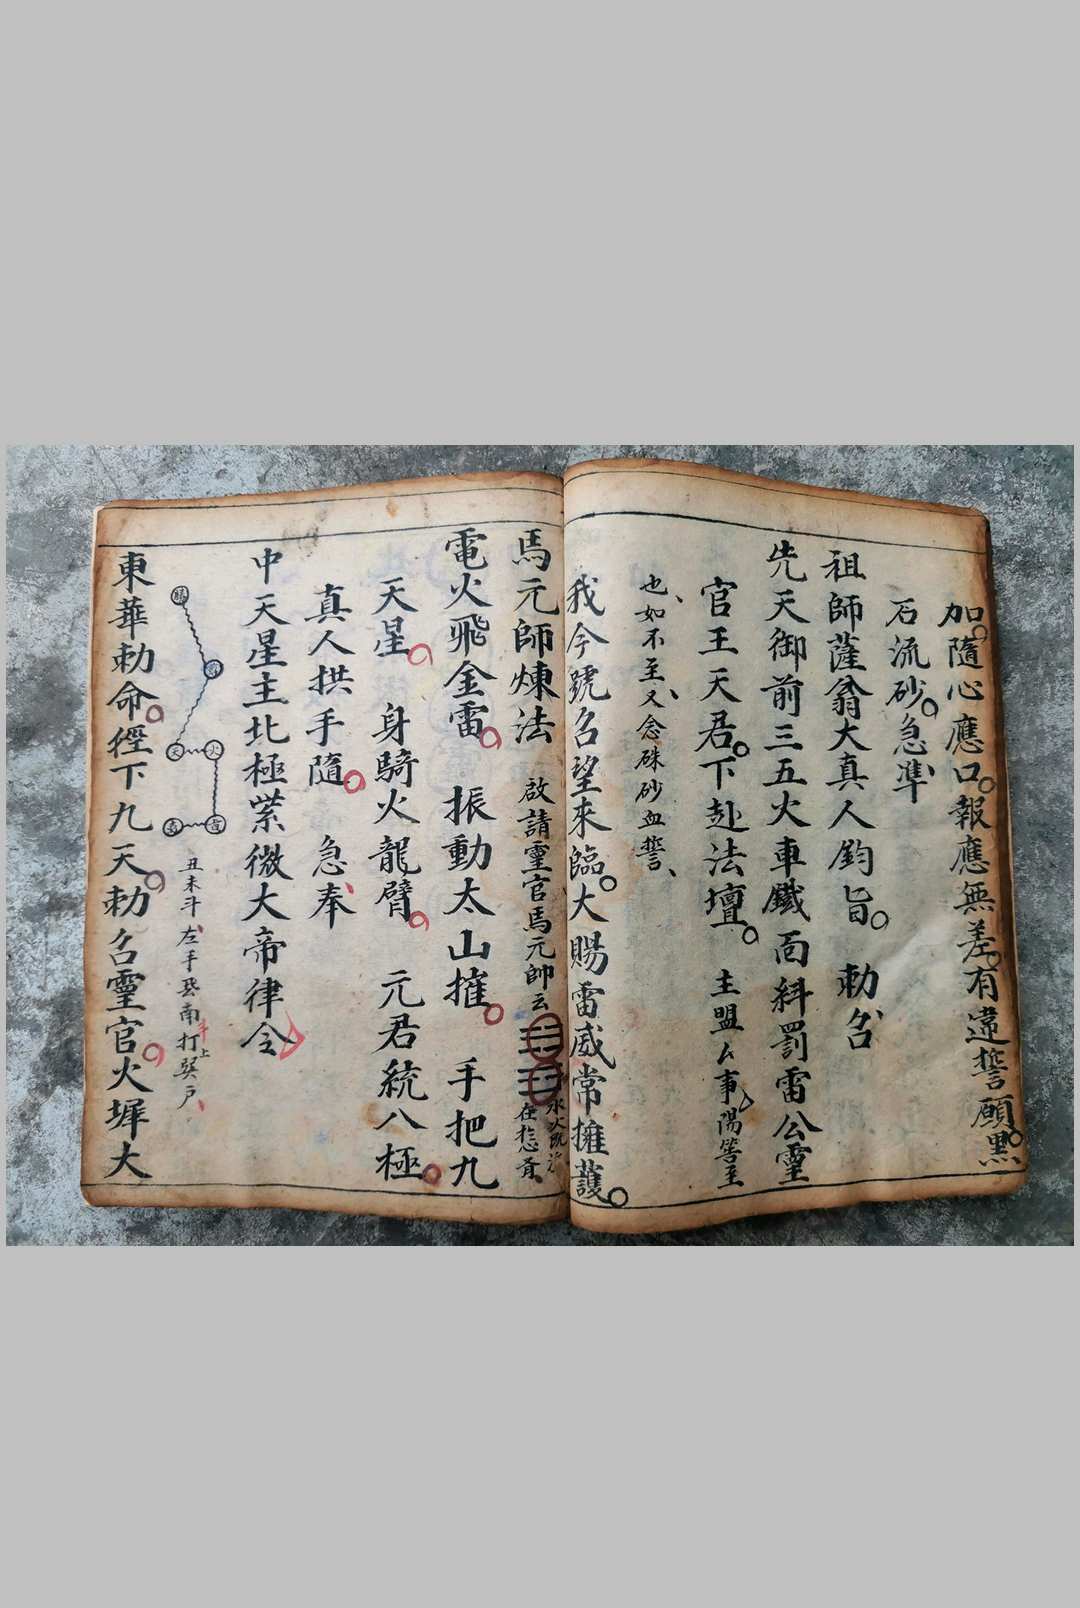 加隨心應口報應無差有違誓願黑
石流砂急準
祖師薩翁大真人鈞旨 勅召
先天御前三五火車鐵面糾罰雷公靈
官王天君下赴法壇 主盟厶事陽筶至
也如不至又念硃砂血誓
我今號召望來臨大賜雷威常擁護
馬元師煉法 啟請靈官馬元帥云
電火飛金雷 振動太山摧 手把九
天星 身騎火龍臂 元君統八極
真人拱手隨 急奉
中天星主北極紫微大帝律令
丑未斗左手 南打巽戶
手上
天火
東華勅命徑下九天勅召靈官火犀大